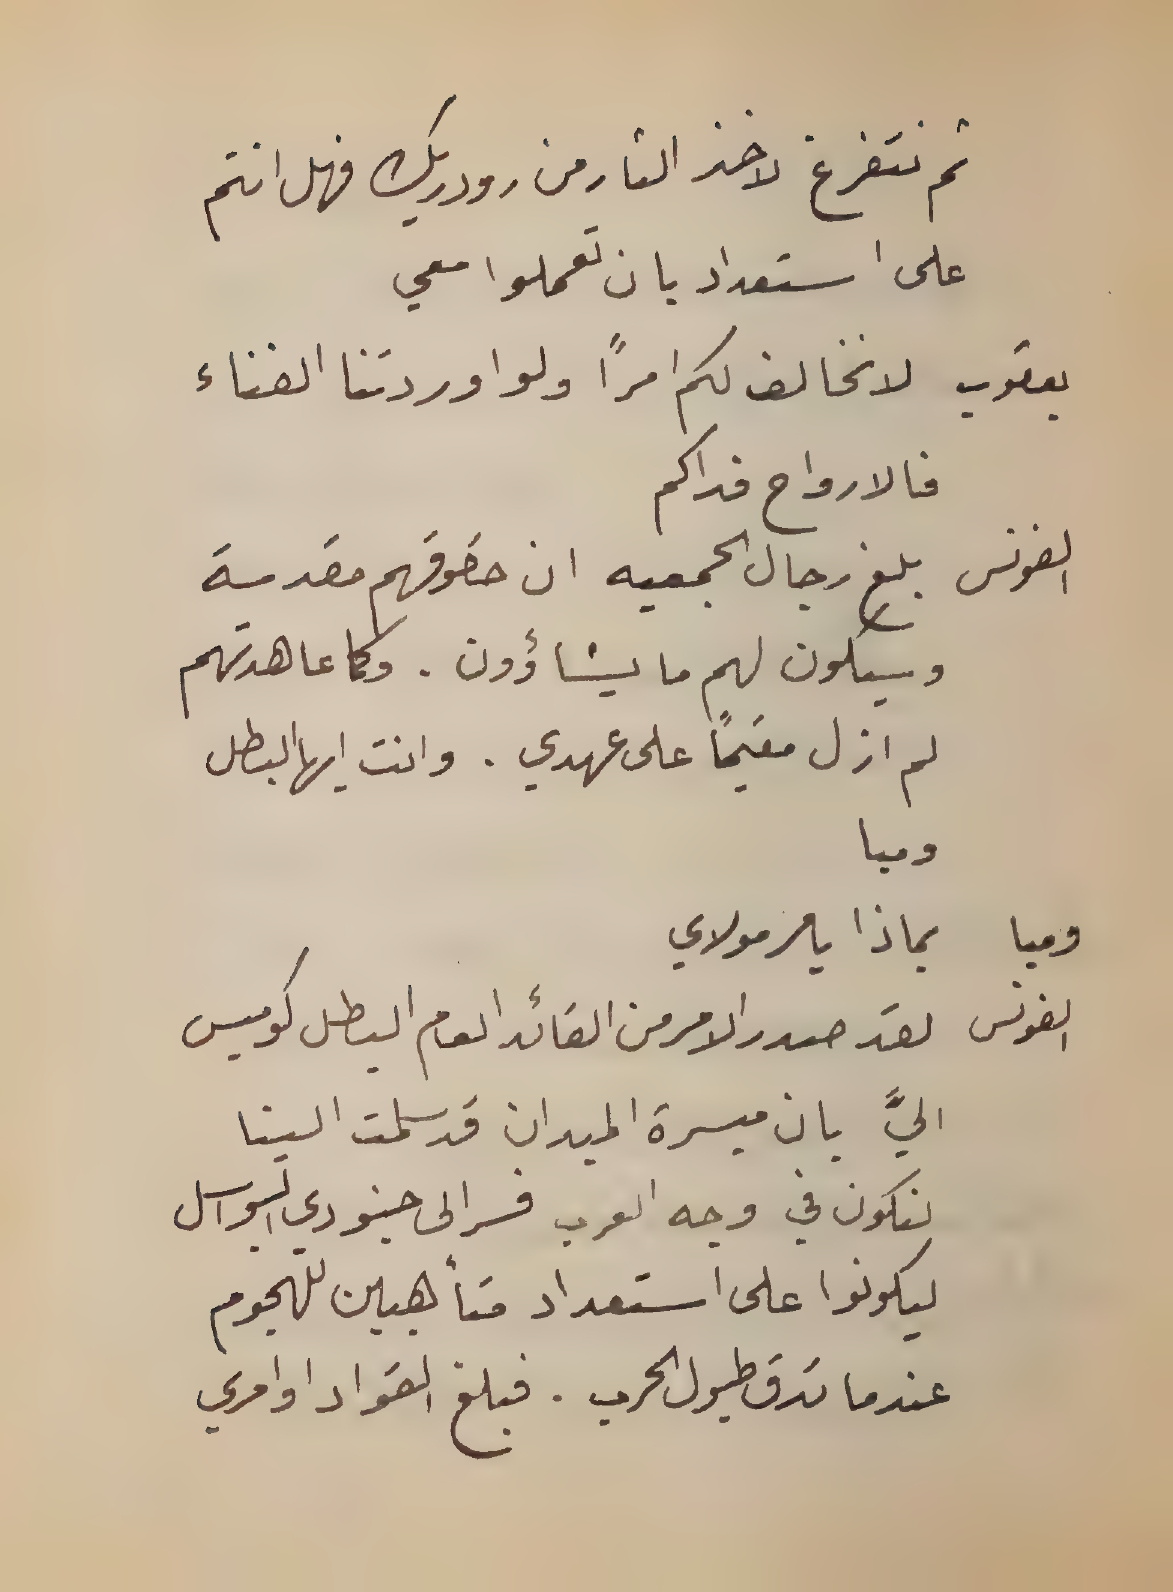 ثم نتفرغ لاخذ الثار من رودريك فهل انتم
على استعداد بان تعملوا معي
يعقوب لا نخالف لكم امرًا ولو اوردتنا الفناء
فالارواح فداكم
الفونس بلغ رجال الجمعيه ان حقوقهم مقدسة
وسيكون لهم ما يشاؤون . وكما عاهدتهم
لم ازل مقيمًا على عهدي . وانت ايها البطل
ومبا
ومبا بماذا يامر مولاي
الفونس لقد صدر الامر من القائد العام البطل كوميس
اليَّ بان ميسرة الميدان قد سلمت الينا
لنكون في وجه العرب فسر الى جنودي البواسل
ليكونوا على استعداد متأهبين للهجوم
عندما تدق طبول الحرب . فبلغ القواد اوامري